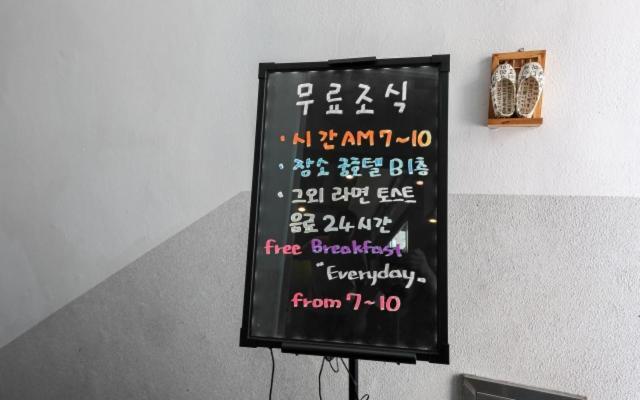 무료조식
· 시간 AM 7~10
· 장소 굴호텔 B1층
· 그외 라면 토스트
음료 24시간
free Breakfast
"Everyday"
from 7~10